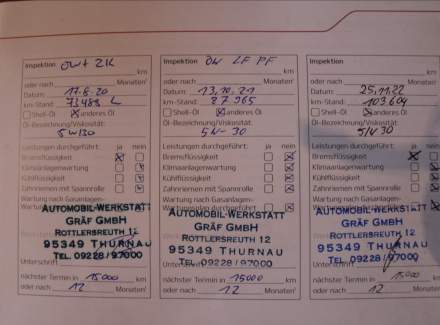 Inspektion OW+ 2K
km
oder nach Monaten
Datum: 17.8.20
km-Stand: 73488
Shell-Öl anderes Öl
Öl-Bezeichnung/Viskosität:
5W30
Leistungen durchgeführt: ja nein
Bremsflüssigkeit
Klimaanlagenwartung
Kühlflüssigkeit
Zahnriemen mit Spannrolle
Wartung nach Gasanlagen-
AUTOMOBIL-WERKSTATT
GRÄF GMBH
ROTTLERSREUTH 12
95349 THURNAU
TEL. 09228/97000
Unterschrift
nächster Termin in 15000 km
oder nach 12 Monaten
Inspektion ÖW LF PF
km
oder nach Monaten
Datum: 13.10.21
km-Stand: 87965
Shell-Öl anderes Öl
Öl-Bezeichnung/Viskosität:
5W-30
Leistungen durchgeführt: ja nein
Bremsflüssigkeit
Klimaanlagenwartung
Kühlflüssigkeit
Zahnriemen mit Spannrolle
Wartung nach Gasanlagen-
AUTOMOBIL-WERKSTATT
GRÄF GMBH
ROTTLERSREUTH 12
95349 THURNAU
TEL. 09228/97000
Unterschrift
nächster Termin in 15000 km
oder nach 12 Monaten
Inspektion
km
oder nach Monaten
Datum: 25.11.22
km-Stand: 103604
Shell-Öl anderes Öl
Öl-Bezeichnung/Viskosität:
5W30
Leistungen durchgeführt: ja nein
Bremsflüssigkeit
Klimaanlagenwartung
Kühlflüssigkeit
Zahnriemen mit Spannrolle
Wartung nach Gasanlagen-
AUTOMOBIL-WERKSTATT
GRÄF GMBH
ROTTLERSREUTH 12
95349 THURNAU
TEL. 09228/97000
Unterschrift
nächster Termin in 15000 km
oder nach 12 Monaten